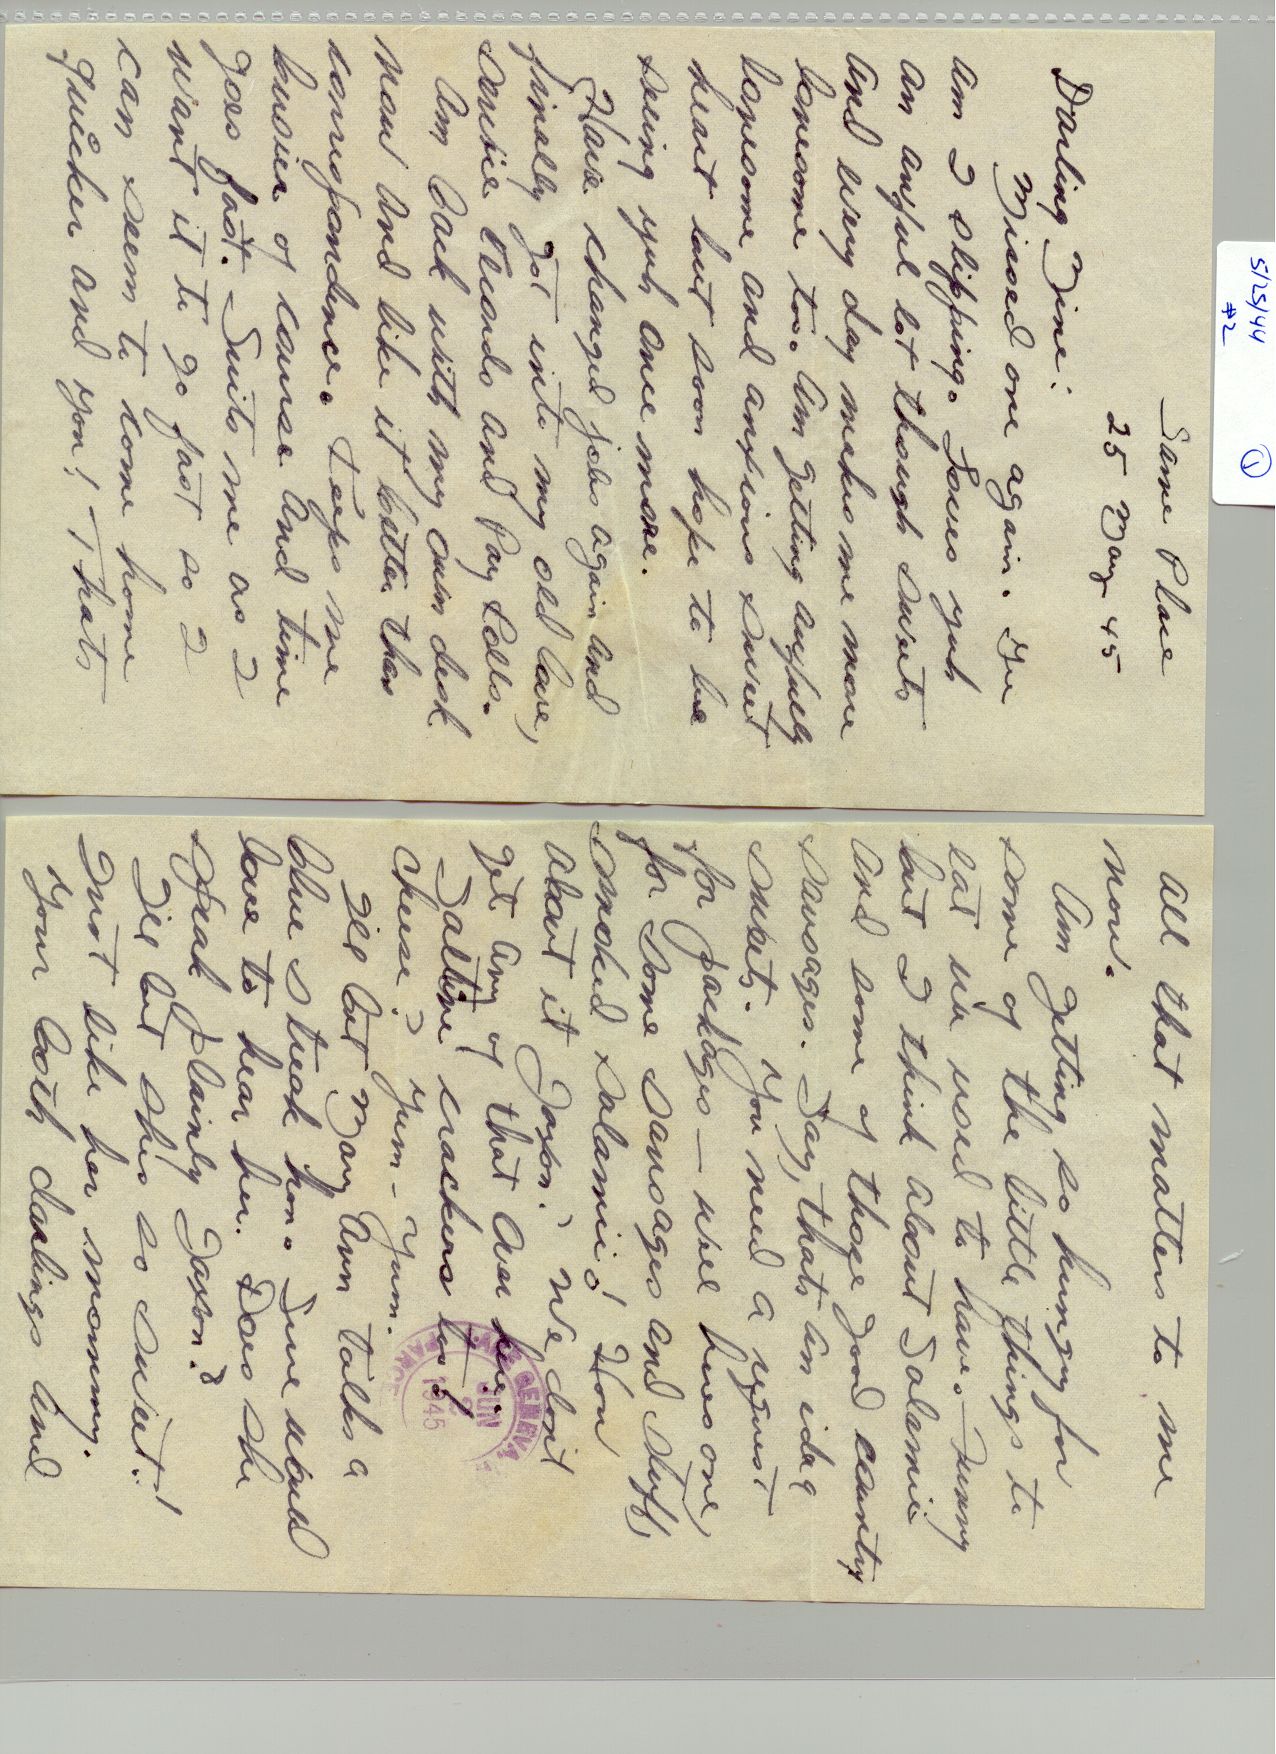 5/25/44
#2
1
Same Place
25 May 45
Darling Mine:
Missed one again. Gee
am I slipping. Loves yuh
an awful lot though sweets
and every day makes me more
lonesome too. Am getting awfully
lonesome and anxious sweet
heart but soon hope to be
seeing yuh once more.
Have changed jobs again and
finally got into my old love,
Service Records and Pay Rolls.
Am back with my own desk
now and like it better than
correspondence. Keeps me
busier of course and time
goes fast. Suits me as I
want it to go fast so I
can seem to come home
quicker and you! Thats
all that matters to me
now.
Am getting so hungry for
some of the little things to
eat we used to have. Funny
but I think about Salamie
and some of those good country
sausages. Say, thats an idea
sweets. You need a request
for packages — well heres one,
for some sausages and stuff,
smoked salamie! How
about it Jaxon? We dont
get any of that over here.
Saltine crackers too &
cheese? Yum - Yum.
Ill bet Mary Ann talks a
blue streak hon. Sure would
love to hear her. Does she
speak plainly Jaxon?
Ill bet shes so sweet!
Just like her mommy.
Your both darlings and
GENEVA
JUN
2
1945